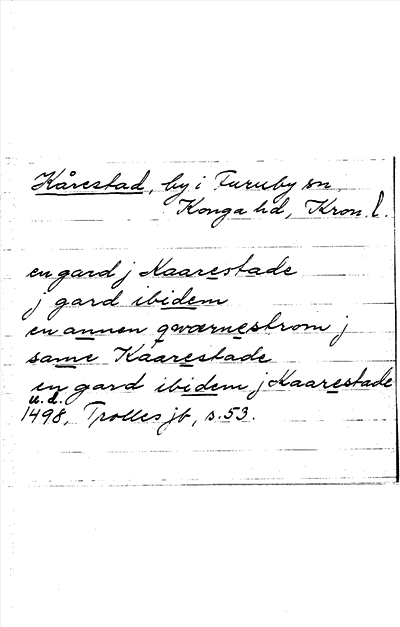 Kårestad, by i Furuby sn,
Konga hd, Kron. l.
en gard j Kaarestade
j gard ibidem
en annen qwærnestrom j
same Kaarestade
en gard ibidem j Kaarestade
u.d.
1498, Trolles jb, s. 53.